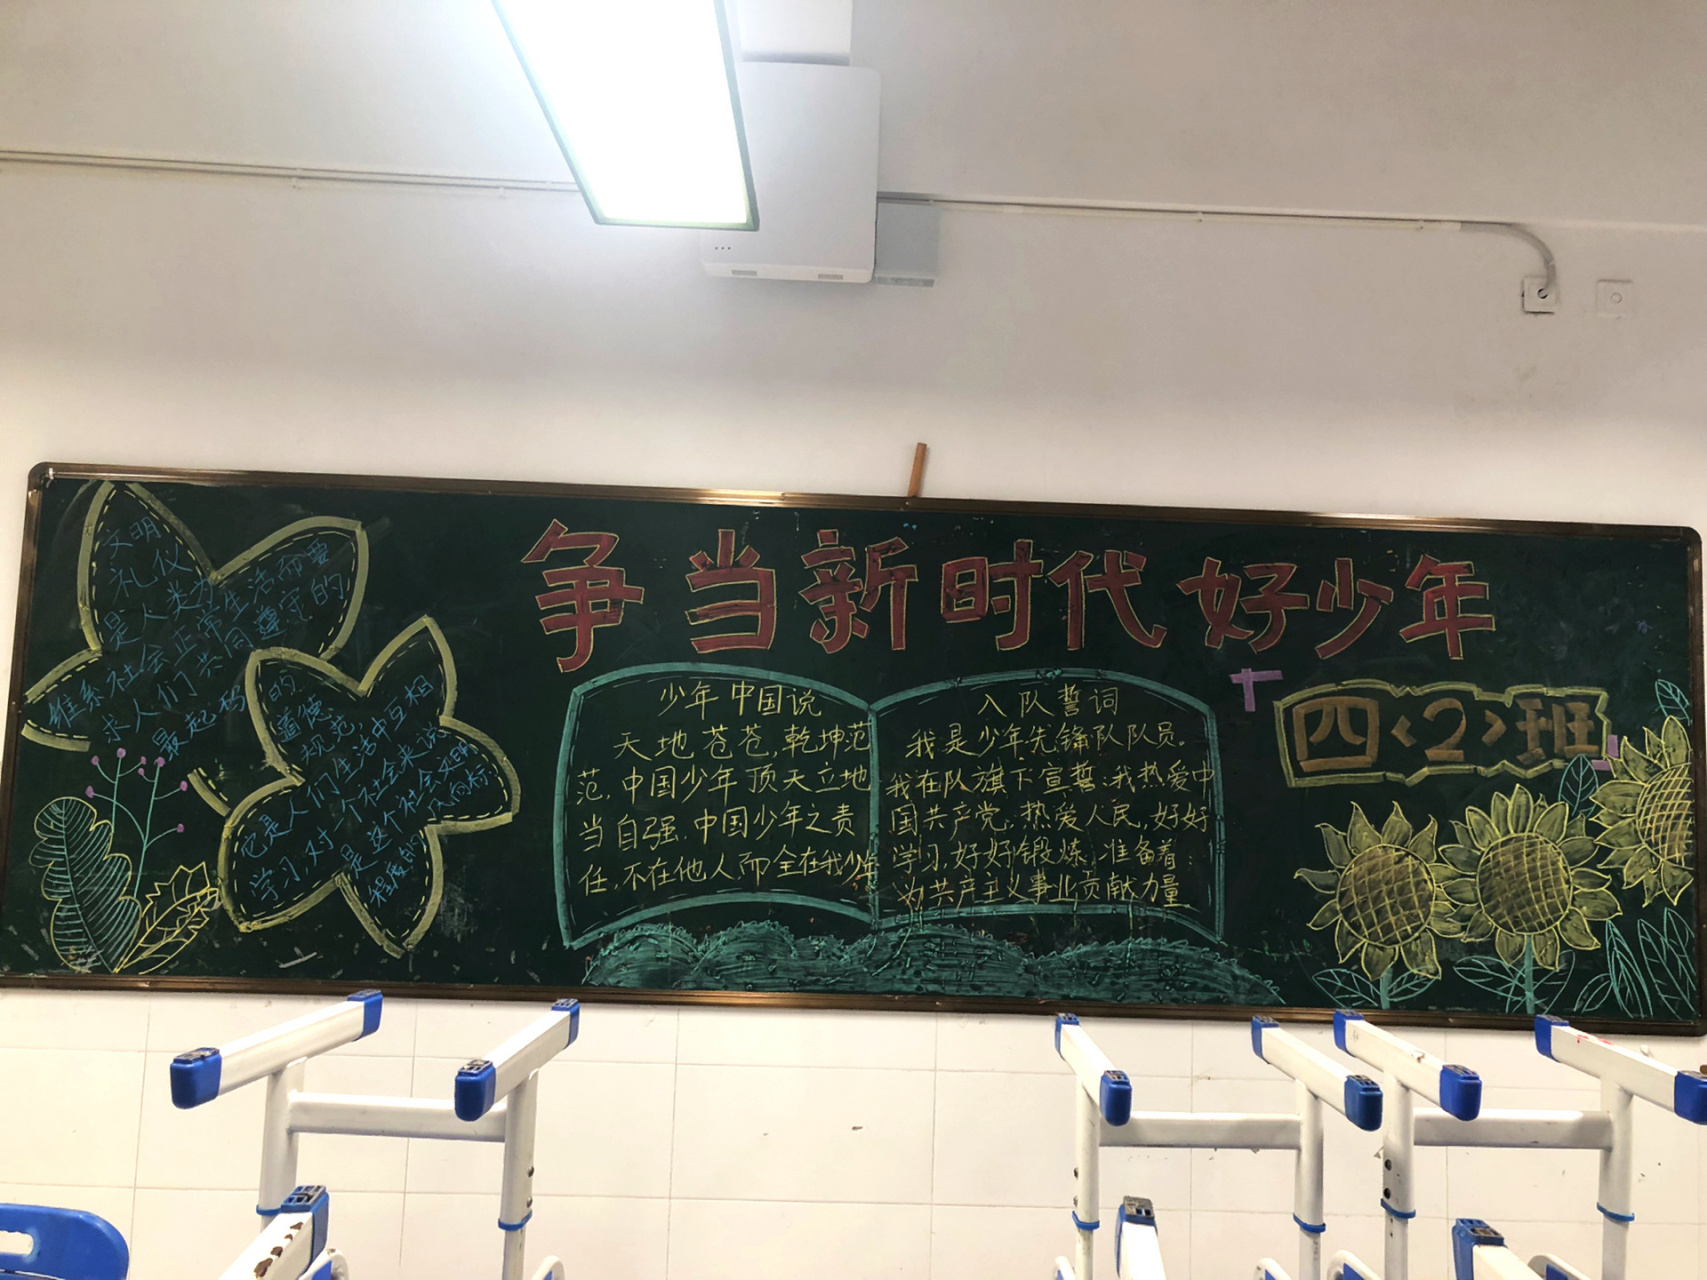 争当新时代好少年
文明
礼仪
是人类为
维系社会正常生活而要
求人们共同遵守的
最起码
的
道德
规范,
它是人们生活中互相
学习,对一个社会来说
是这个社会文明
程度的
少年中国说
天地苍苍,乾坤范
范,中国少年顶天立地
当自强.中国少年之责
任,不在他人而全在我少年
入队誓词
我是少年先锋队队员。
我在队旗下宣誓:我热爱中
国共产党,热爱人民,好好
学习,好好锻炼,准备着:
为共产主义事业贡献力量
四<2>班